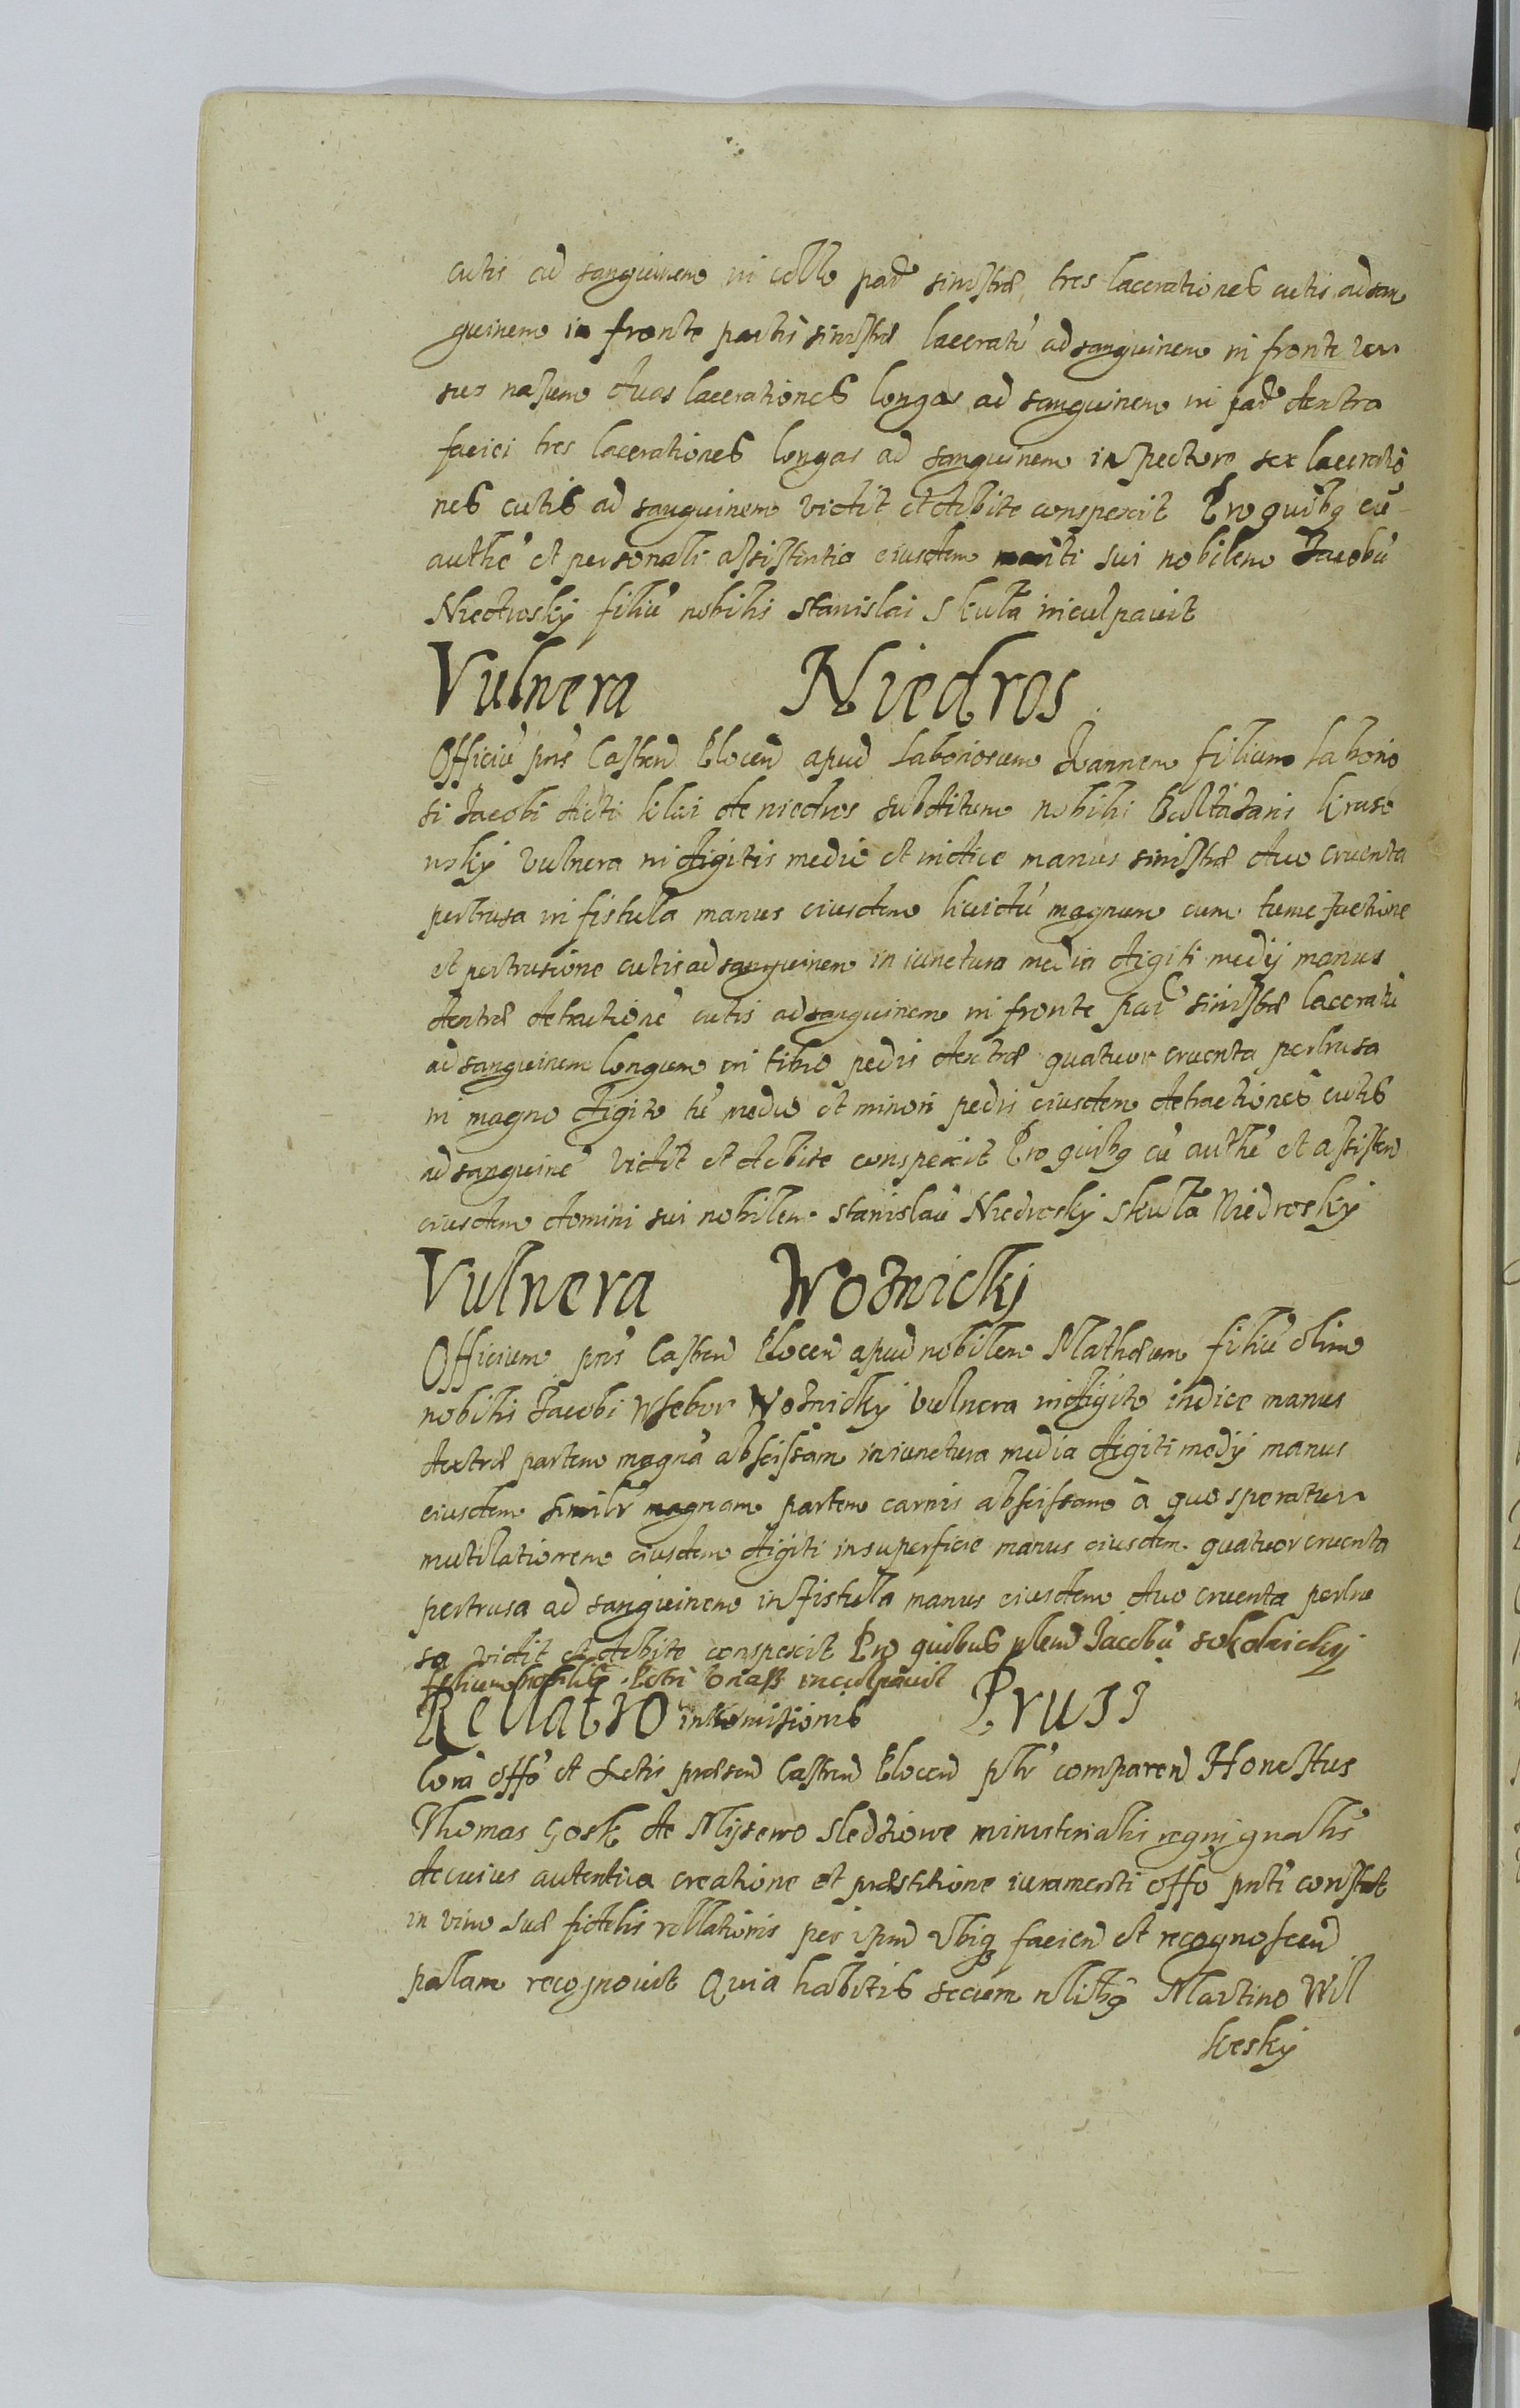 cutis ad sanguinem in collo part sinistræ, tres lacerationes cutis ad san
guinem in fronte partis sinistræ laceratũ ad sanguinem in fronte ver
sus nasum duas lacerationes longas ad sanguinem in part dextra
faciei tres lacerationes longas ad sanguinem in pectore sex laceratio
nes cutis ad sanguinem vidit et debite conspexit Pro quibq cũ
authẽ et personali assistentia eiusdem mariti sui nobilem Jacobũ
Niedrosky filiũ nobilis Stanislai Skula inculpavit
Vulnera Niedros
Officiũ pñs Castren Plocen apud Laboriosum Joannem filium Laborio
si Jacobi dicti de Niedros subditum nobilis Baltasaris
vulnera in digitis medio et indice manus sinistræ duo cruenta
pertrusa in fistula manus eiusdem liuidũ magnum cum tumefactione
et pertrusione cutis ad sanguinem in iunctura media digiti medij manus
dextræ detractionẽ cutis ad sanguinem in fronte part sinistræ laceratũ
ad sanguinem longum in tibio pedis dextræ quatuor cruenta pertrusa
in magno digito tũ medio et minori pedis eiusdem detractiones cutis
ad sanguinẽ vidit et debite conspexit Pro quibq cũ authẽ et assisten
eiusdem domini sui nobilem Stanislaũ Niedrosky Skula Niedrosky
Vulnera Woznickj
Officium pñs Castren Plocen apud nobilem Mathæum filiũ olim
nobilis Jacobi Wsebor Woznickj vulnera in digito indice manus
dextræ partem magnã abscissam in iunctura media digiti medij manus
eiusdem similr magnam partem carnis abscissam a quo speratur
mutilationem eiusdem digiti in superficie manus eiusdem quatuor cruenta
pertrusa ad sanguinem in fistula manus eiusdem duo cruenta pertru
sa vidit et debite conspexit Pro quibus Jacobũ Sokolnickj
filium nobilis Petri inculpauit
Rellatio intromissionis Prusi
Corã offõ et Actis præsen Castren Plocen plr comparen Honestus
Thomas Gosk de Miszewo Sledziowe ministerialis regni gnalis
de cuius autentica creatione et præstitione iuramenti offõ pñti constat
in vim suæ fidelis rellationis per ipm vbiq facien et recognoscen
palam recognouit Quia habitis secum nlibq Martino Wil
kesky